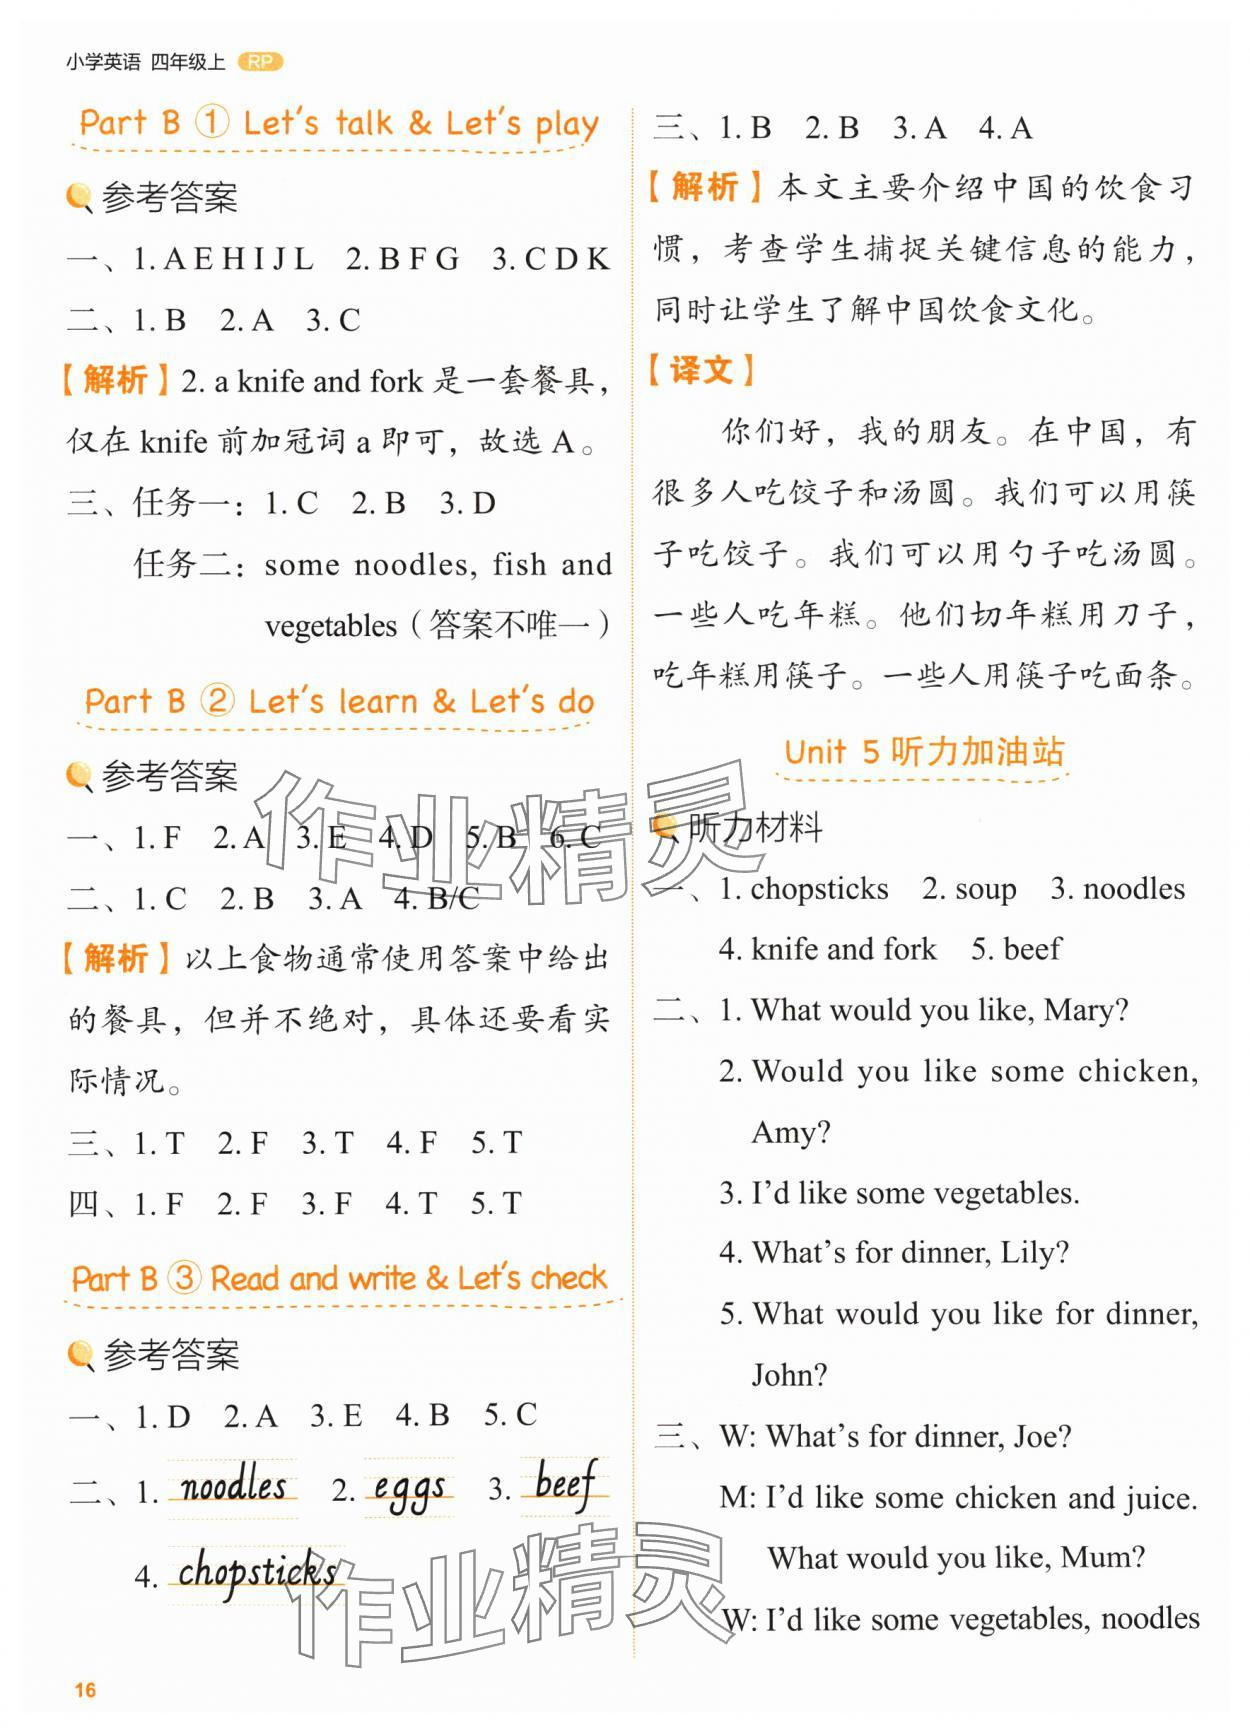 小学英语 四年级上 RP
Part B ① Let's talk & Let's play
参考答案
一、1. A E H I J L 2. B F G 3. C D K
二、1. B 2. A 3. C
【解析】2. a knife and fork 是一套餐具，
仅在 knife 前加冠词 a 即可，故选 A。
三、任务一：1. C 2. B 3. D
任务二：some noodles, fish and
vegetables（答案不唯一）
Part B ② Let's learn & Let's do
参考答案
一、1. F 2. A 3. E 4. D 5. B 6. C
二、1. C 2. B 3. A 4. B/C
【解析】以上食物通常使用答案中给出
的餐具，但并不绝对，具体还要看实
际情况。
三、1. T 2. F 3. T 4. F 5. T
四、1. F 2. F 3. F 4. T 5. T
Part B ③ Read and write & Let's check
参考答案
一、1. D 2. A 3. E 4. B 5. C
二、1. noodles 2. eggs 3. beef
4. chopsticks
16
三、1. B 2. B 3. A 4. A
【解析】本文主要介绍中国的饮食习
惯，考查学生捕捉关键信息的能力，
同时让学生了解中国饮食文化。
【译文】
你们好，我的朋友。在中国，有
很多人吃饺子和汤圆。我们可以用筷
子吃饺子。我们可以用勺子吃汤圆。
一些人吃年糕。他们切年糕用刀子，
吃年糕用筷子。一些人用筷子吃面条。
Unit 5 听力加油站
听力材料
一、1. chopsticks 2. soup 3. noodles
4. knife and fork 5. beef
二、1. What would you like, Mary?
2. Would you like some chicken,
Amy?
3. I'd like some vegetables.
4. What's for dinner, Lily?
5. What would you like for dinner,
John?
三、W: What's for dinner, Joe?
M: I'd like some chicken and juice.
What would you like, Mum?
W: I'd like some vegetables, noodles
作业精灵
作业精灵